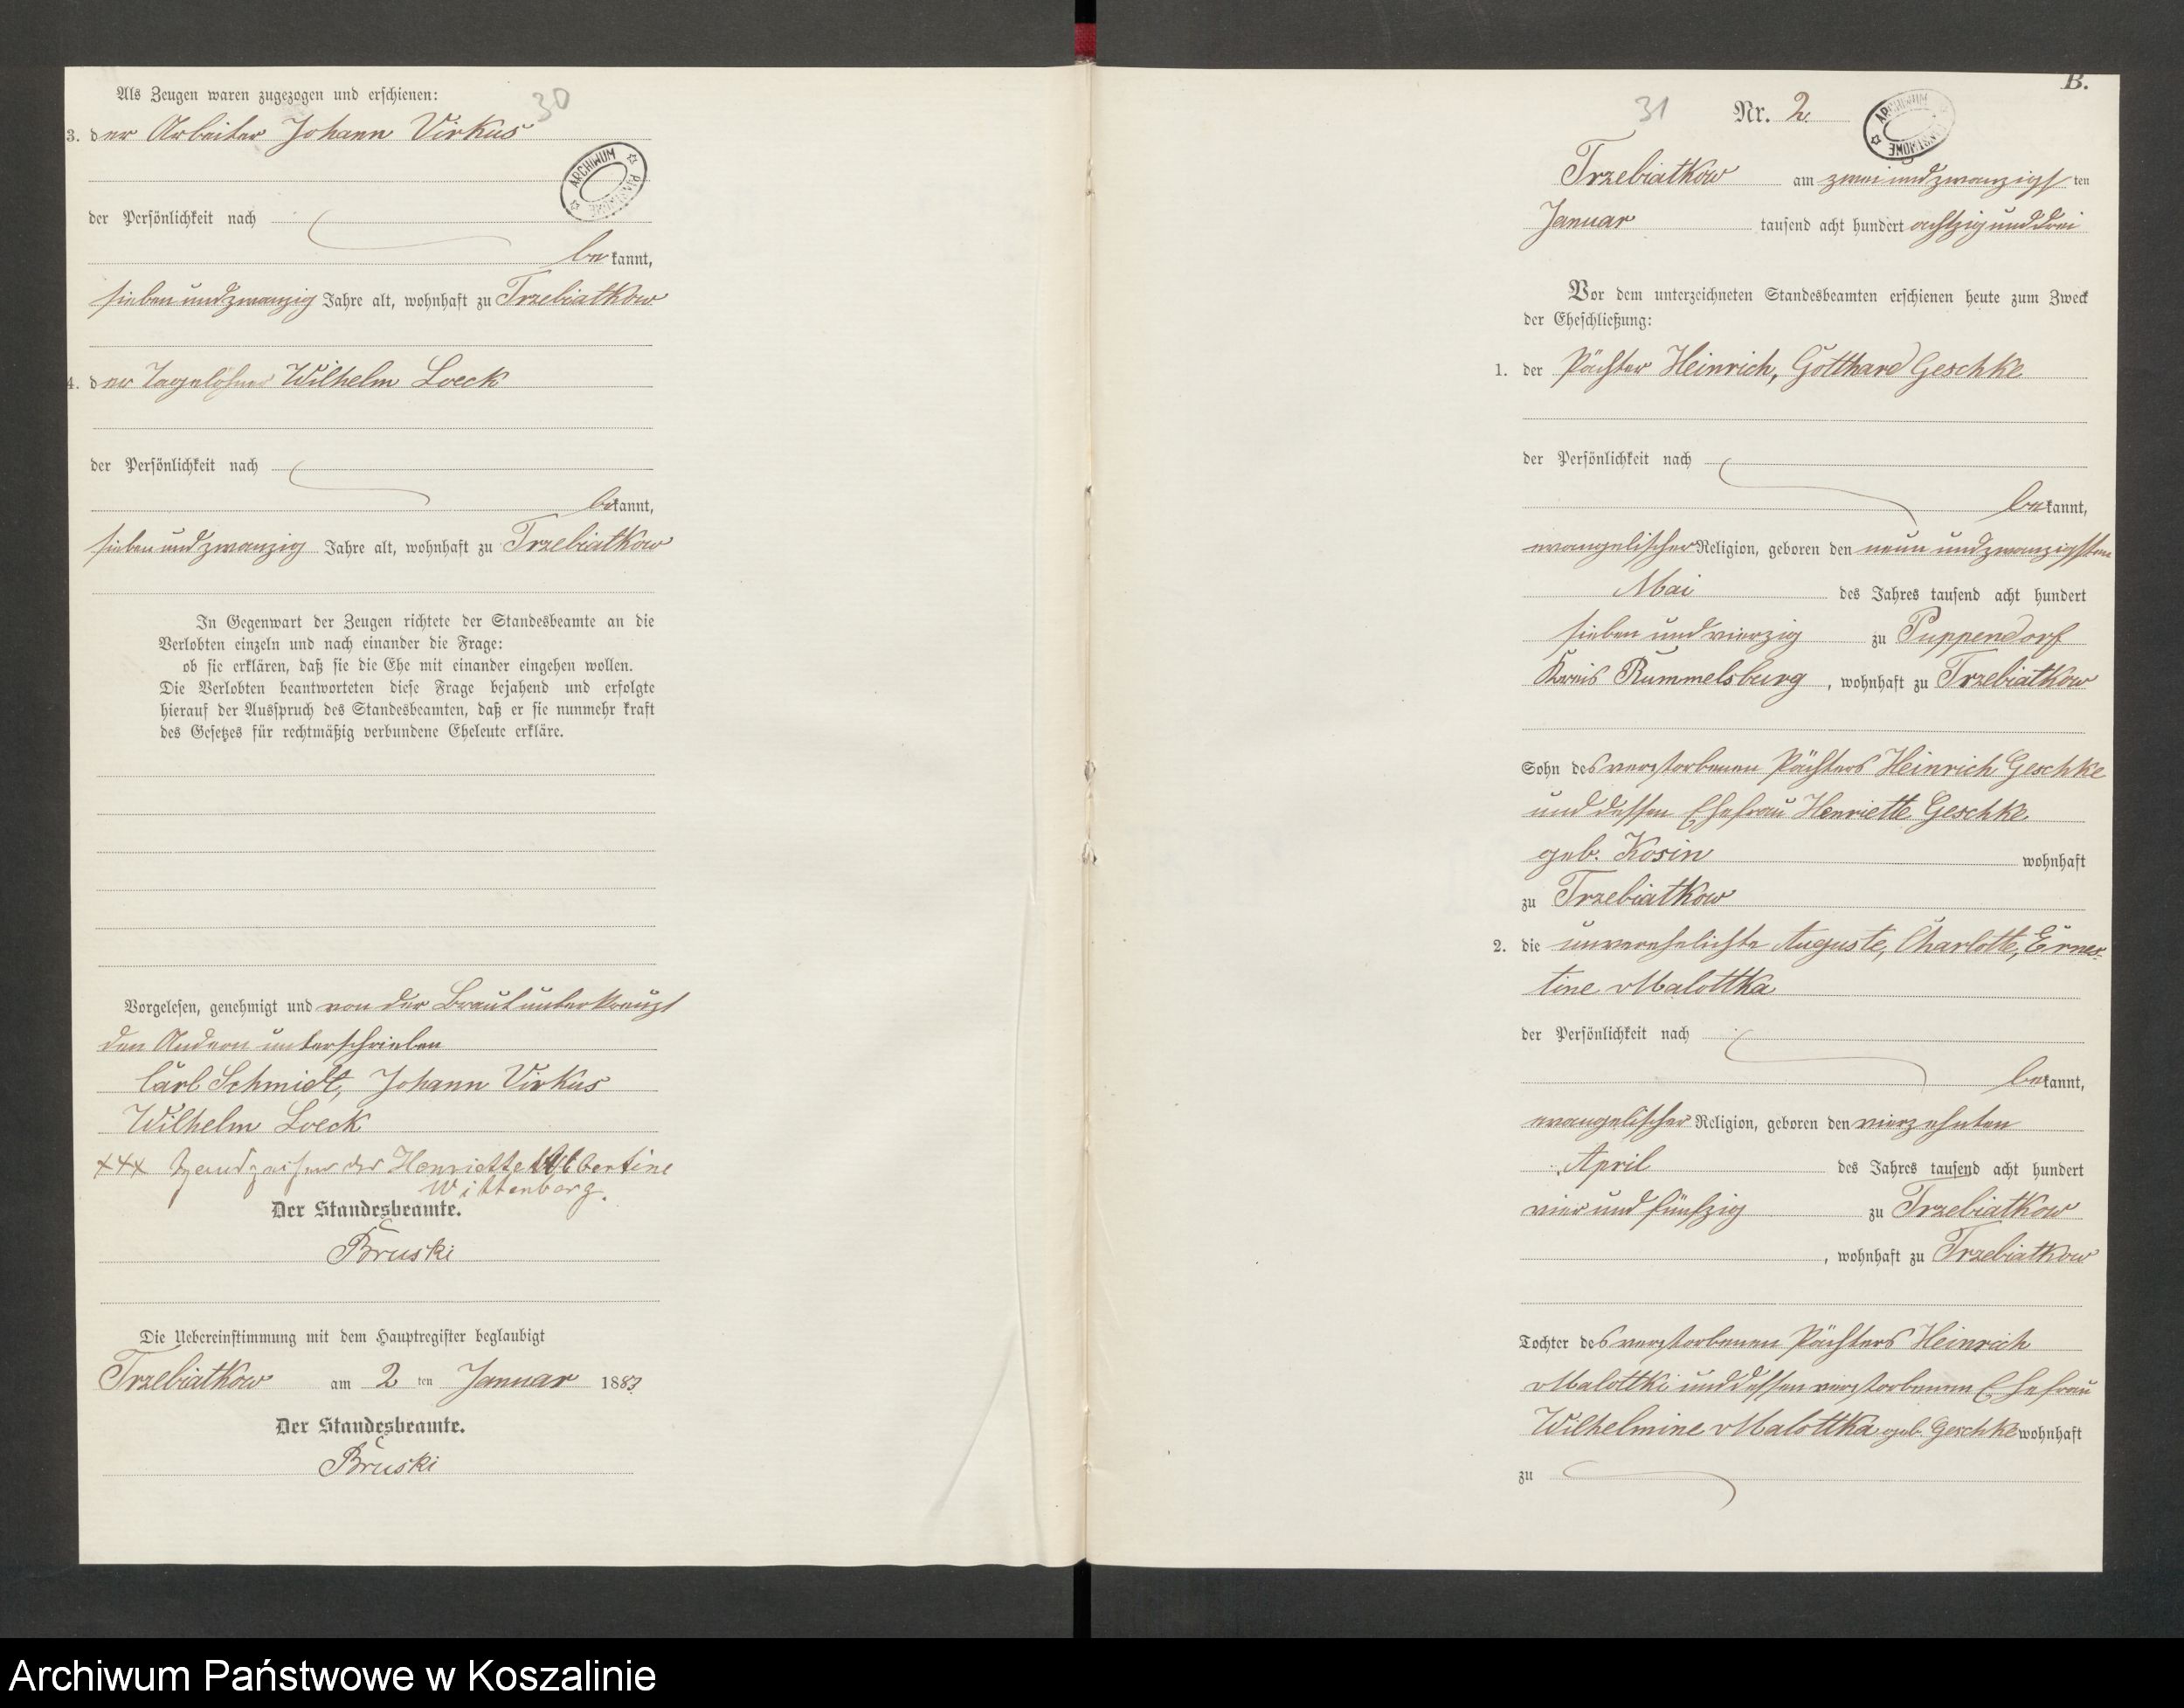 Als Zeugen waren zugezogen und erschienen:
30
3. der Arbeiter Johann Virkus
ARCHIWUM
der Persönlichkeit nach
bekannt,
sieben und zwanzig Jahre alt, wohnhaft zu Trzebiatkow
4. der Tagelöhner Wilhelm Loeck
der Persönlichkeit nach
bekannt,
sieben und zwanzig Jahre alt, wohnhaft zu Trzebiatkow
In Gegenwart der Zeugen richtete der Standesbeamte an die
Verlobten einzeln und nach einander die Frage:
ob sie erklären, daß sie die Ehe mit einander eingehen wollen.
Die Verlobten beantworteten diese Frage bejahend und erfolgte
hierauf der Ausspruch des Standesbeamten, daß er sie nunmehr kraft
des Gesetzes für rechtmäßig verbundene Eheleute erkläre.
Vorgelesen, genehmigt und von der Braut unterkreuzt
den Andern unterschrieben
Carl Schmidt, Johann Virkus
Wilhelm Loeck
+++ Handzeichen der Henriette Albertine
Wittenberg.
Der Standesbeamte.
Bruski
Die Uebereinstimmung mit dem Hauptregister beglaubigt
Trzebiatkow am 2 ten Januar 1883
Der Standesbeamte.
Bruski
B.
31 Nr. 2.
ARCHIWUM
Trzebiatkow am zwei und zwanzigsten
Januar tausend acht hundert achtzig und drei
Vor dem unterzeichneten Standesbeamten erschienen heute zum Zweck
der Eheschließung:
1. der Pächter Heinrich, Gotthard Geschke
der Persönlichkeit nach
bekannt,
evangelischer Religion, geboren den neun und zwanzigsten
Mai des Jahres tausend acht hundert
sieben und vierzig zu Puppendorf
Kreis Rummelsburg, wohnhaft zu Trzebiatkow
Sohn des verstorbenen Pächters Heinrich Geschke
und dessen Ehefrau Henriette Geschke
geb. Kosin wohnhaft
zu Trzebiatkow
2. die unverehelichte Auguste, Charlotte, Ernes-
tine Malottka
der Persönlichkeit nach
bekannt,
evangelischer Religion, geboren den vierzehnten
April des Jahres tausend acht hundert
vier und fünfzig zu Trzebiatkow
, wohnhaft zu Trzebiatkow
Tochter des verstorbenen Pächters Heinrich
Malottki und dessen verstorbenen Ehefrau
Wilhelmine Malottka geb. Geschke wohnhaft
zu
Archiwum Państwowe w Koszalinie